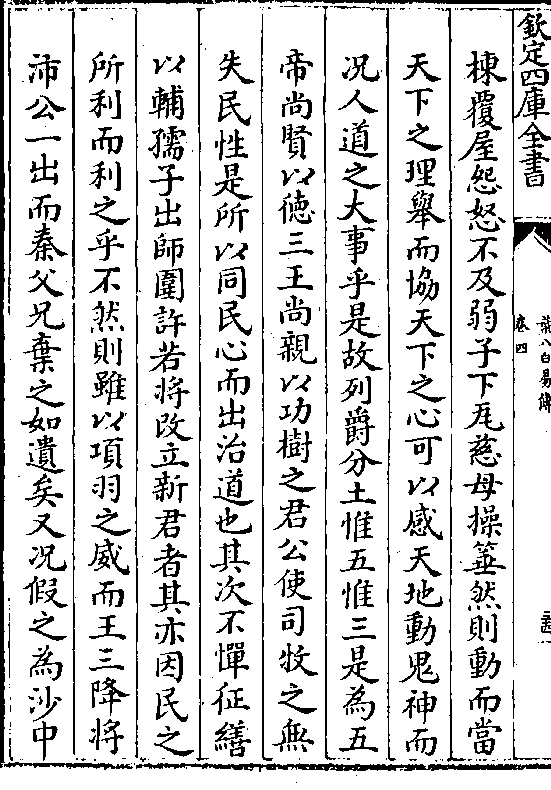 欽定四庫全書
葉八白易傳
卷四
棟覆屋怨怒不及弱子下瓦慈母操箠然則動而當
天下之理舉而協天下之心可以感天地動鬼神而
况人道之大事乎是故列爵分土惟五惟三是為五
帝尚賢以徳三王尚親以功樹之君公使司牧之無
失民性是所以同民心而出治道也其次不憚征繕
以輔孺子出師圍許若將改立新君者其亦因民之
所利而利之乎不然則雖以項羽之威而王三降將
沛公一出而秦父兄棄之如遺矣又况假之為沙中